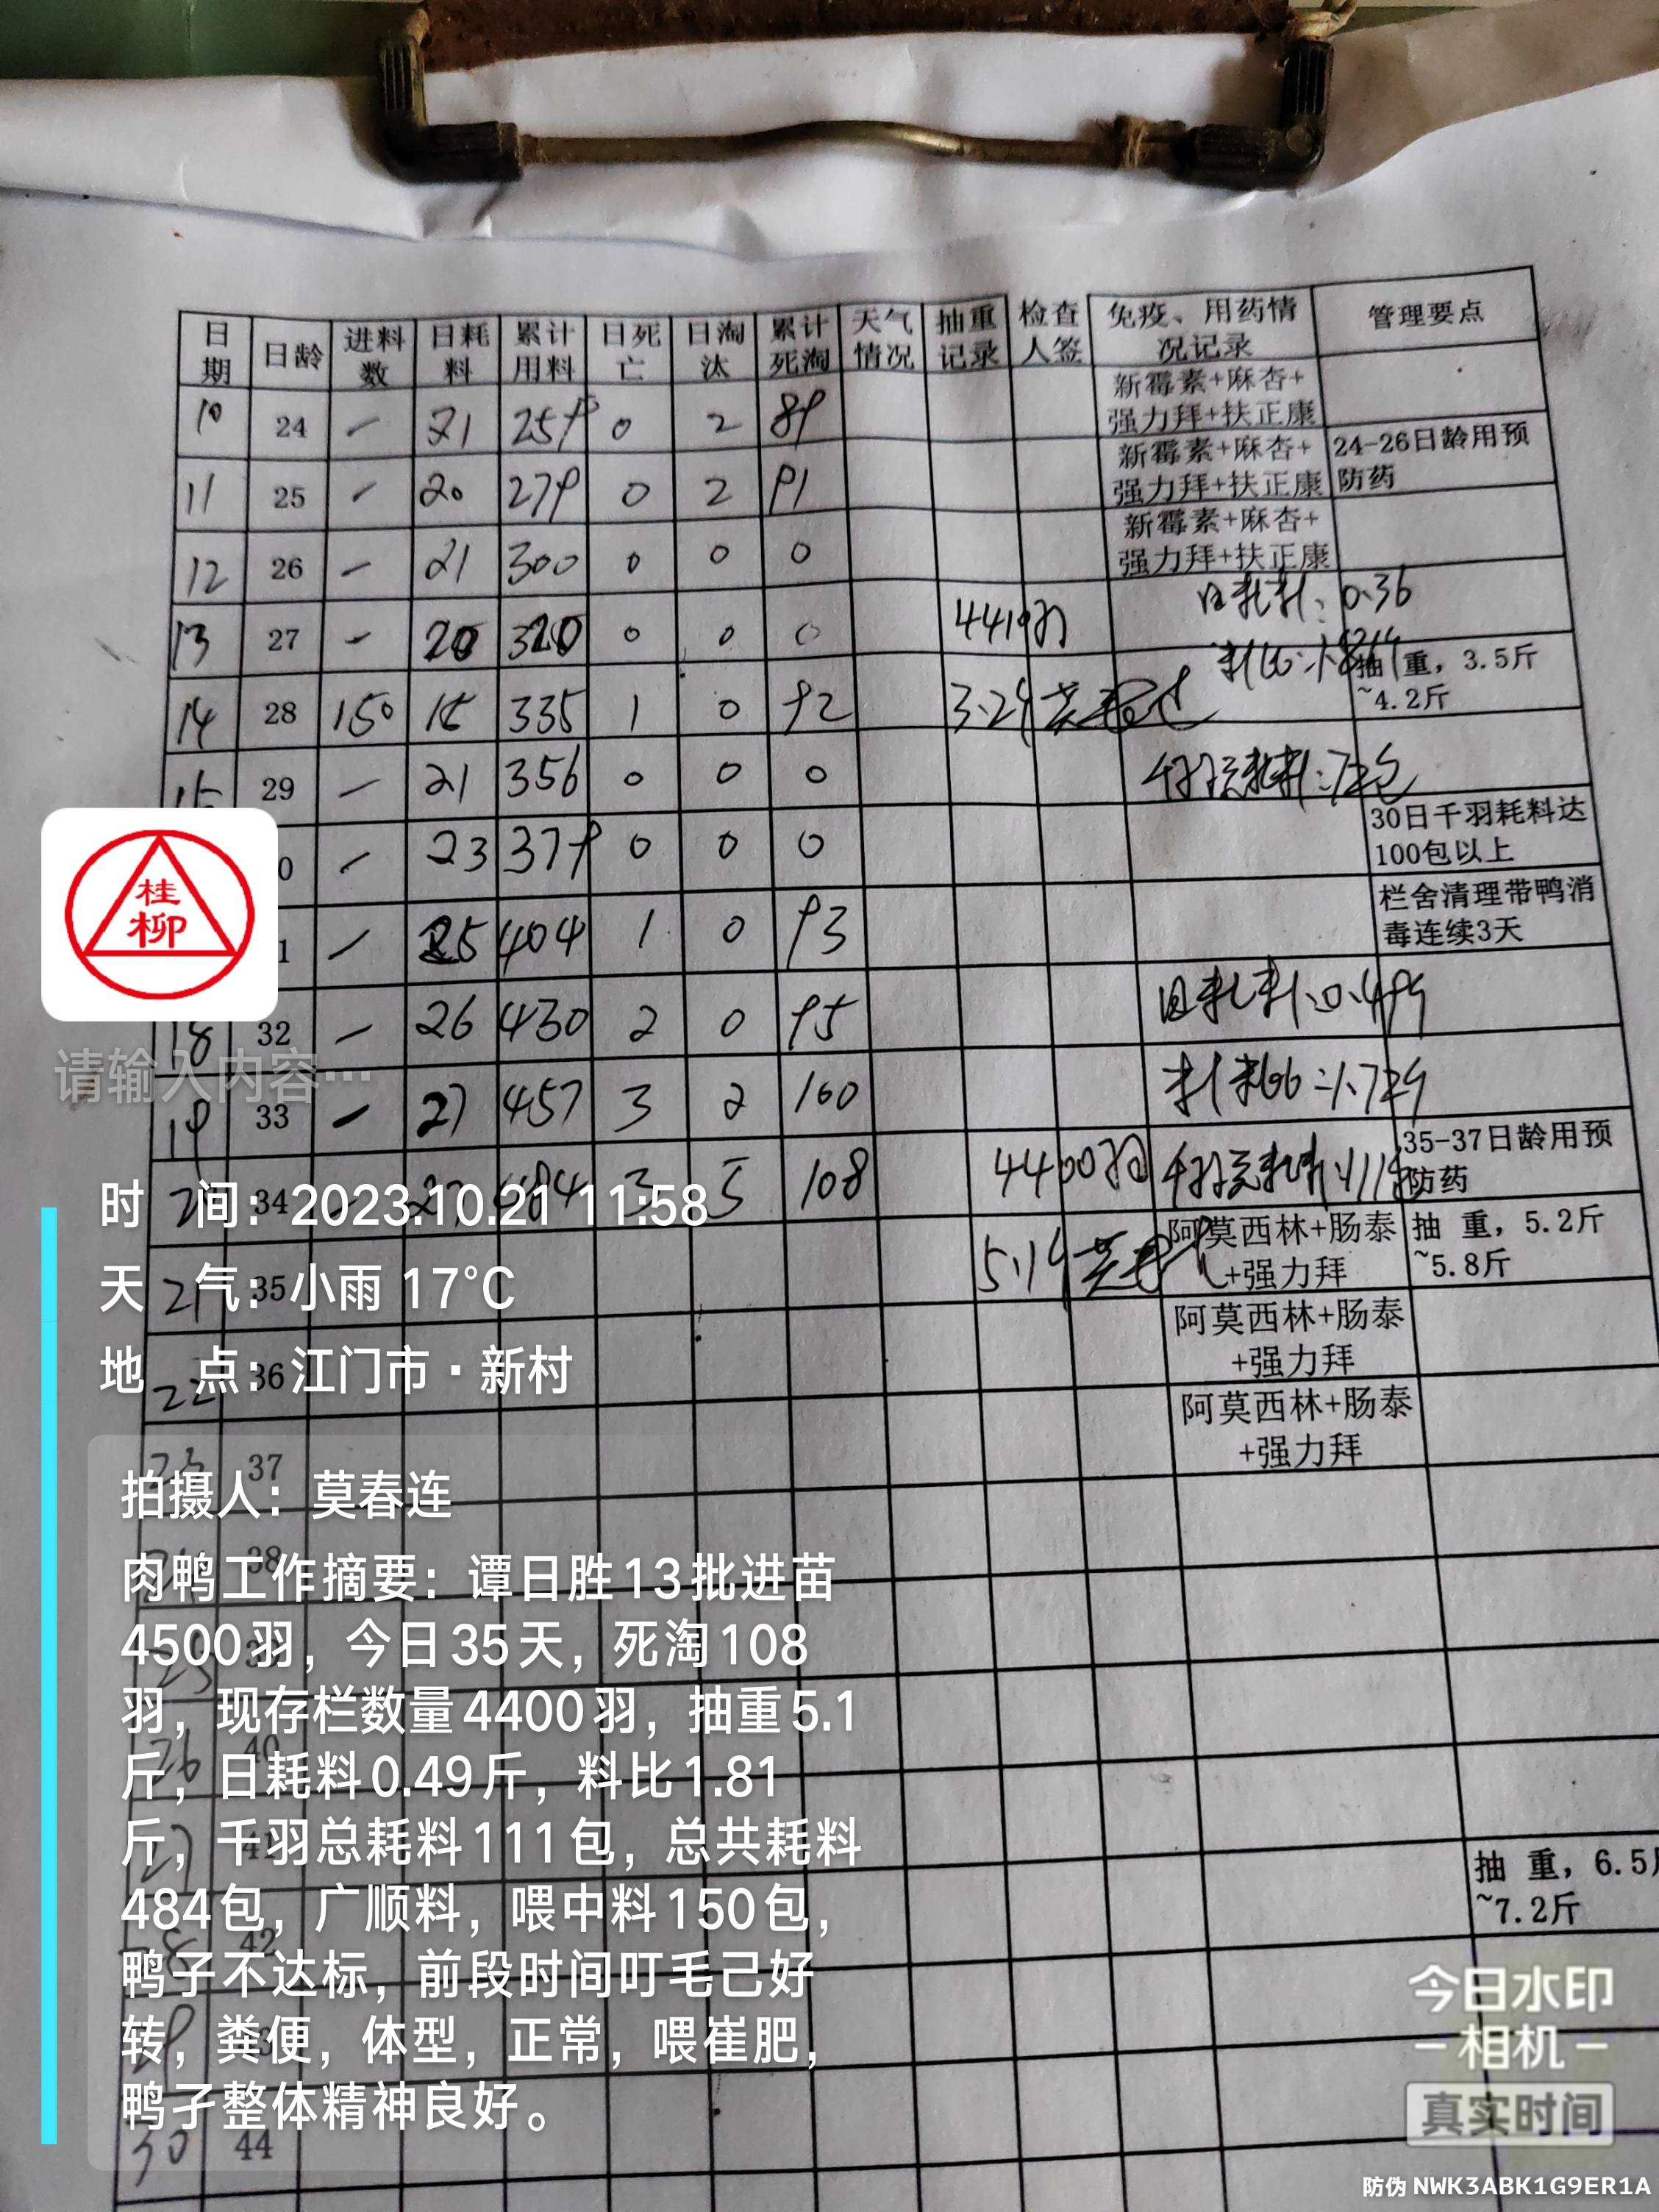 日期 日龄 进料数 日耗料 累计用料 日死亡 日淘汰 累计死淘 天气情况 抽重记录 检查人签 免疫、用药情况记录 管理要点
10 24 - 21 259 0 2 89 新霉素+麻杏+强力拜+扶正康
11 25 - 20 279 0 2 91 新霉素+麻杏+强力拜+扶正康 24-26日龄用预防药
12 26 - 21 300 0 0 0 新霉素+麻杏+强力拜+扶正康
13 27 - 20 320 0 0 0 4419羽 日耗料:0.36
14 28 150 15 335 1 0 92 3.2斤 抽 重，3.5斤~4.2斤
15 29 - 21 356 0 0 0 千羽总耗料:72包
0 - 23 379 0 0 0 30日千羽耗料达100包以上
1 - 25 404 1 0 93 栏舍清理带鸭消毒连续3天
18 32 - 26 430 2 0 95 日耗料:0.49斤
19 33 - 27 457 3 2 100
20 34 - 27 484 3 5 108 4400羽 千羽总耗料:111包 35-37日龄用预防药
21 35 5.1斤 阿莫西林+肠泰+强力拜 抽 重，5.2斤~5.8斤
22 36 阿莫西林+肠泰+强力拜
23 37 阿莫西林+肠泰+强力拜
38
25 39
26 40
27 41 抽 重，6.5斤~7.2斤
28 42
29 3
30 44
桂
柳
请输入内容…
时 间：2023.10.21 11:58
天 气：小雨 17°C
地 点：江门市·新村
拍摄人：莫春连
肉鸭工作摘要：谭日胜13批进苗
4500羽，今日35天，死淘108
羽，现存栏数量4400羽，抽重5.1
斤，日耗料0.49斤，料比1.81
斤，千羽总耗料111包，总共耗料
484包，广顺料，喂中料150包，
鸭子不达标，前段时间叮毛己好
转，粪便，体型，正常，喂崔肥，
鸭子整体精神良好。
今日水印
相机
真实时间
防伪 NWK3ABK1G9ER1A